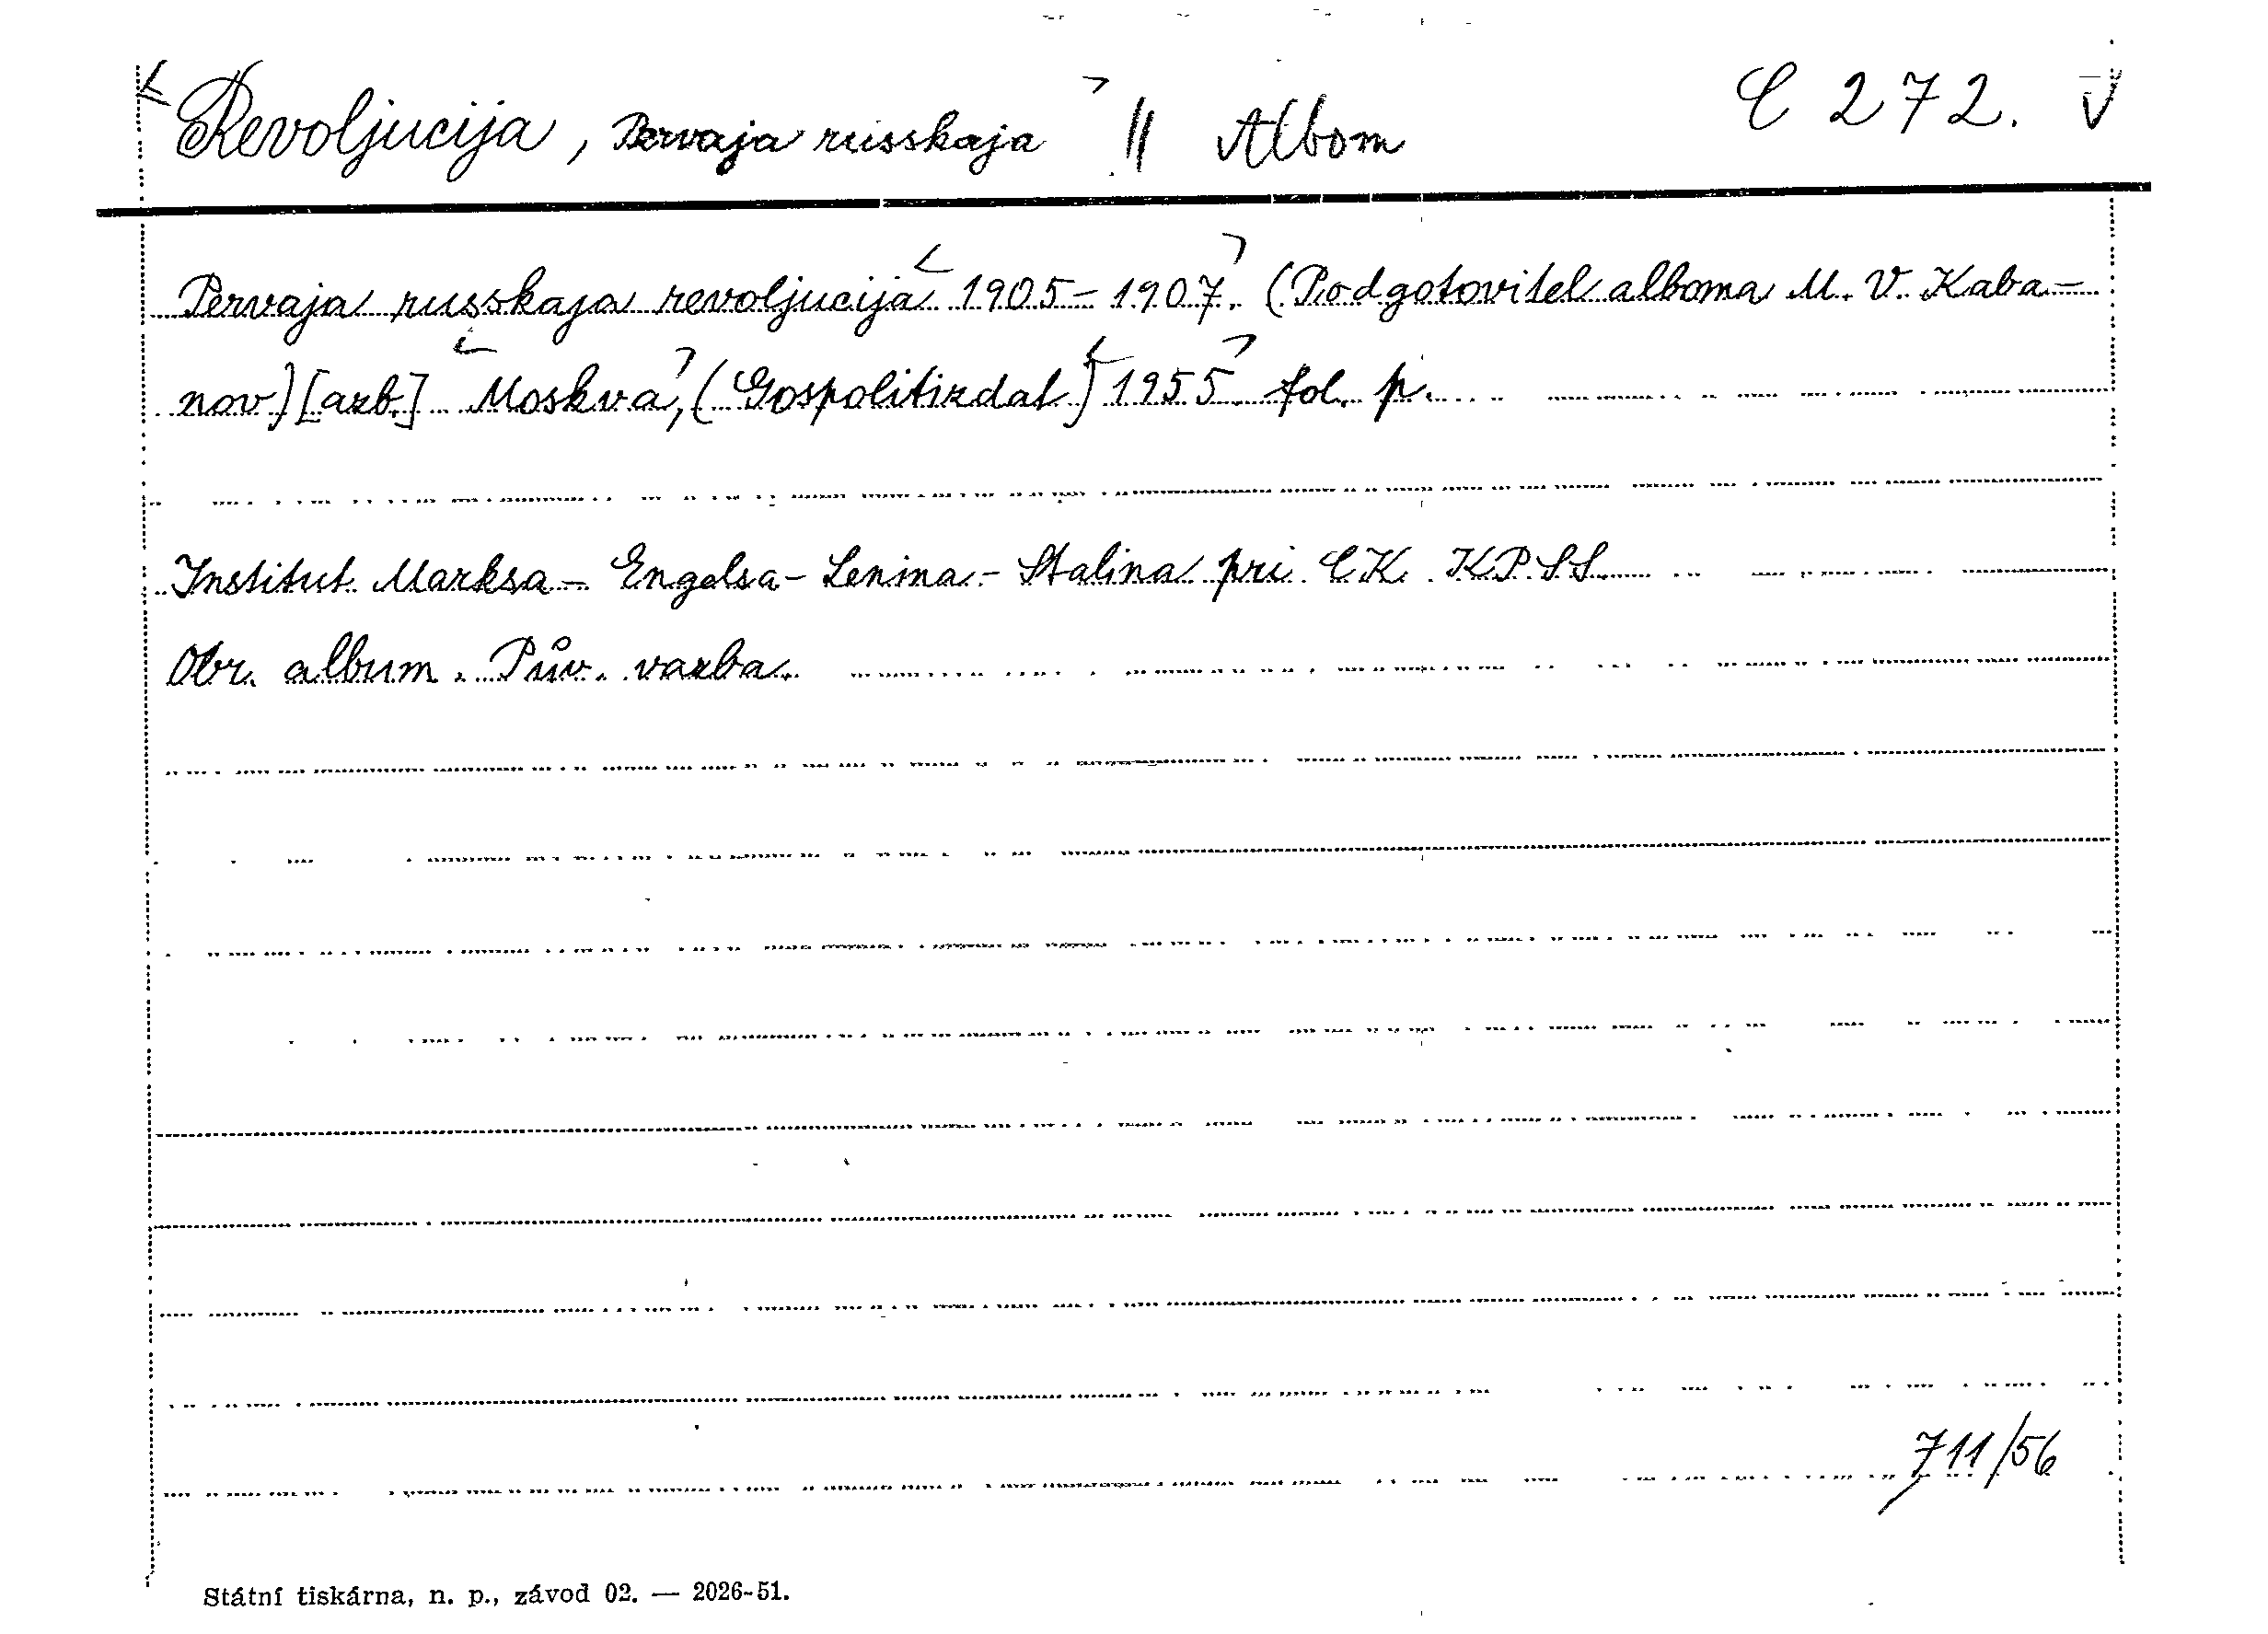 Revoljucija, Pervaja russkaja || Albom C 272. V
Pervaja russkaja revoljucija 1905-1907. (Podgotovitel alboma M. V. Kaba-
nov) [azb.] Moskva, (Gospolitizdat) 1955. fol. p.
Institut Marksa - Engelsa - Lenina - Stalina pri CK KPSS.
Obr. album. Pův. vazba.
711/56
Státní tiskárna, n. p., závod 02. — 2026-51.